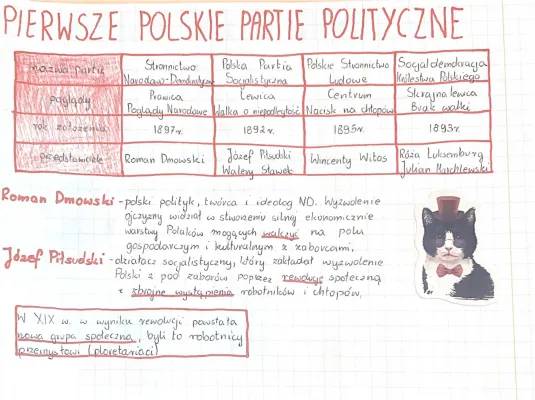 PIERWSZE POLSKIE PARTIE POLITYCZNE
nazwa partii Stronnictwo Narodowo-Demokratyczne Polska Partia Socjalistyczna Polskie Stronnictwo Ludowe Socjaldemokracja Królestwa Polskiego
poglądy Prawica Poglądy Narodowe Lewica Walka o niepodległość Centrum Nacisk na chłopów Skrajna lewica Brak walki
rok założenia 1897r. 1892r. 1895r. 1893r.
przedstawiciele Roman Dmowski Józef Piłsudski Walery Sławek Wincenty Witos Róża Luksemburg Julian Marchlewski
Roman Dmowski - polski polityk, twórca i ideolog ND. Wyzwolenie
ojczyzny widział w stworzeniu silnej ekonomicznie
warstwy Polaków mogących walczyć na polu
gospodarczym i kulturalnym z zaborcami.
Józef Piłsudski - działacz socjalistyczny, który zakładał wyzwolenie
Polski z pod zaborów poprzez rewolucję społeczną
z zbrojne wystąpienia robotników i chłopów.
W XIX w. w wyniku rewolucji powstała
nowa grupa społeczna, byli to robotnicy
przemysłowi (ploretariaci)